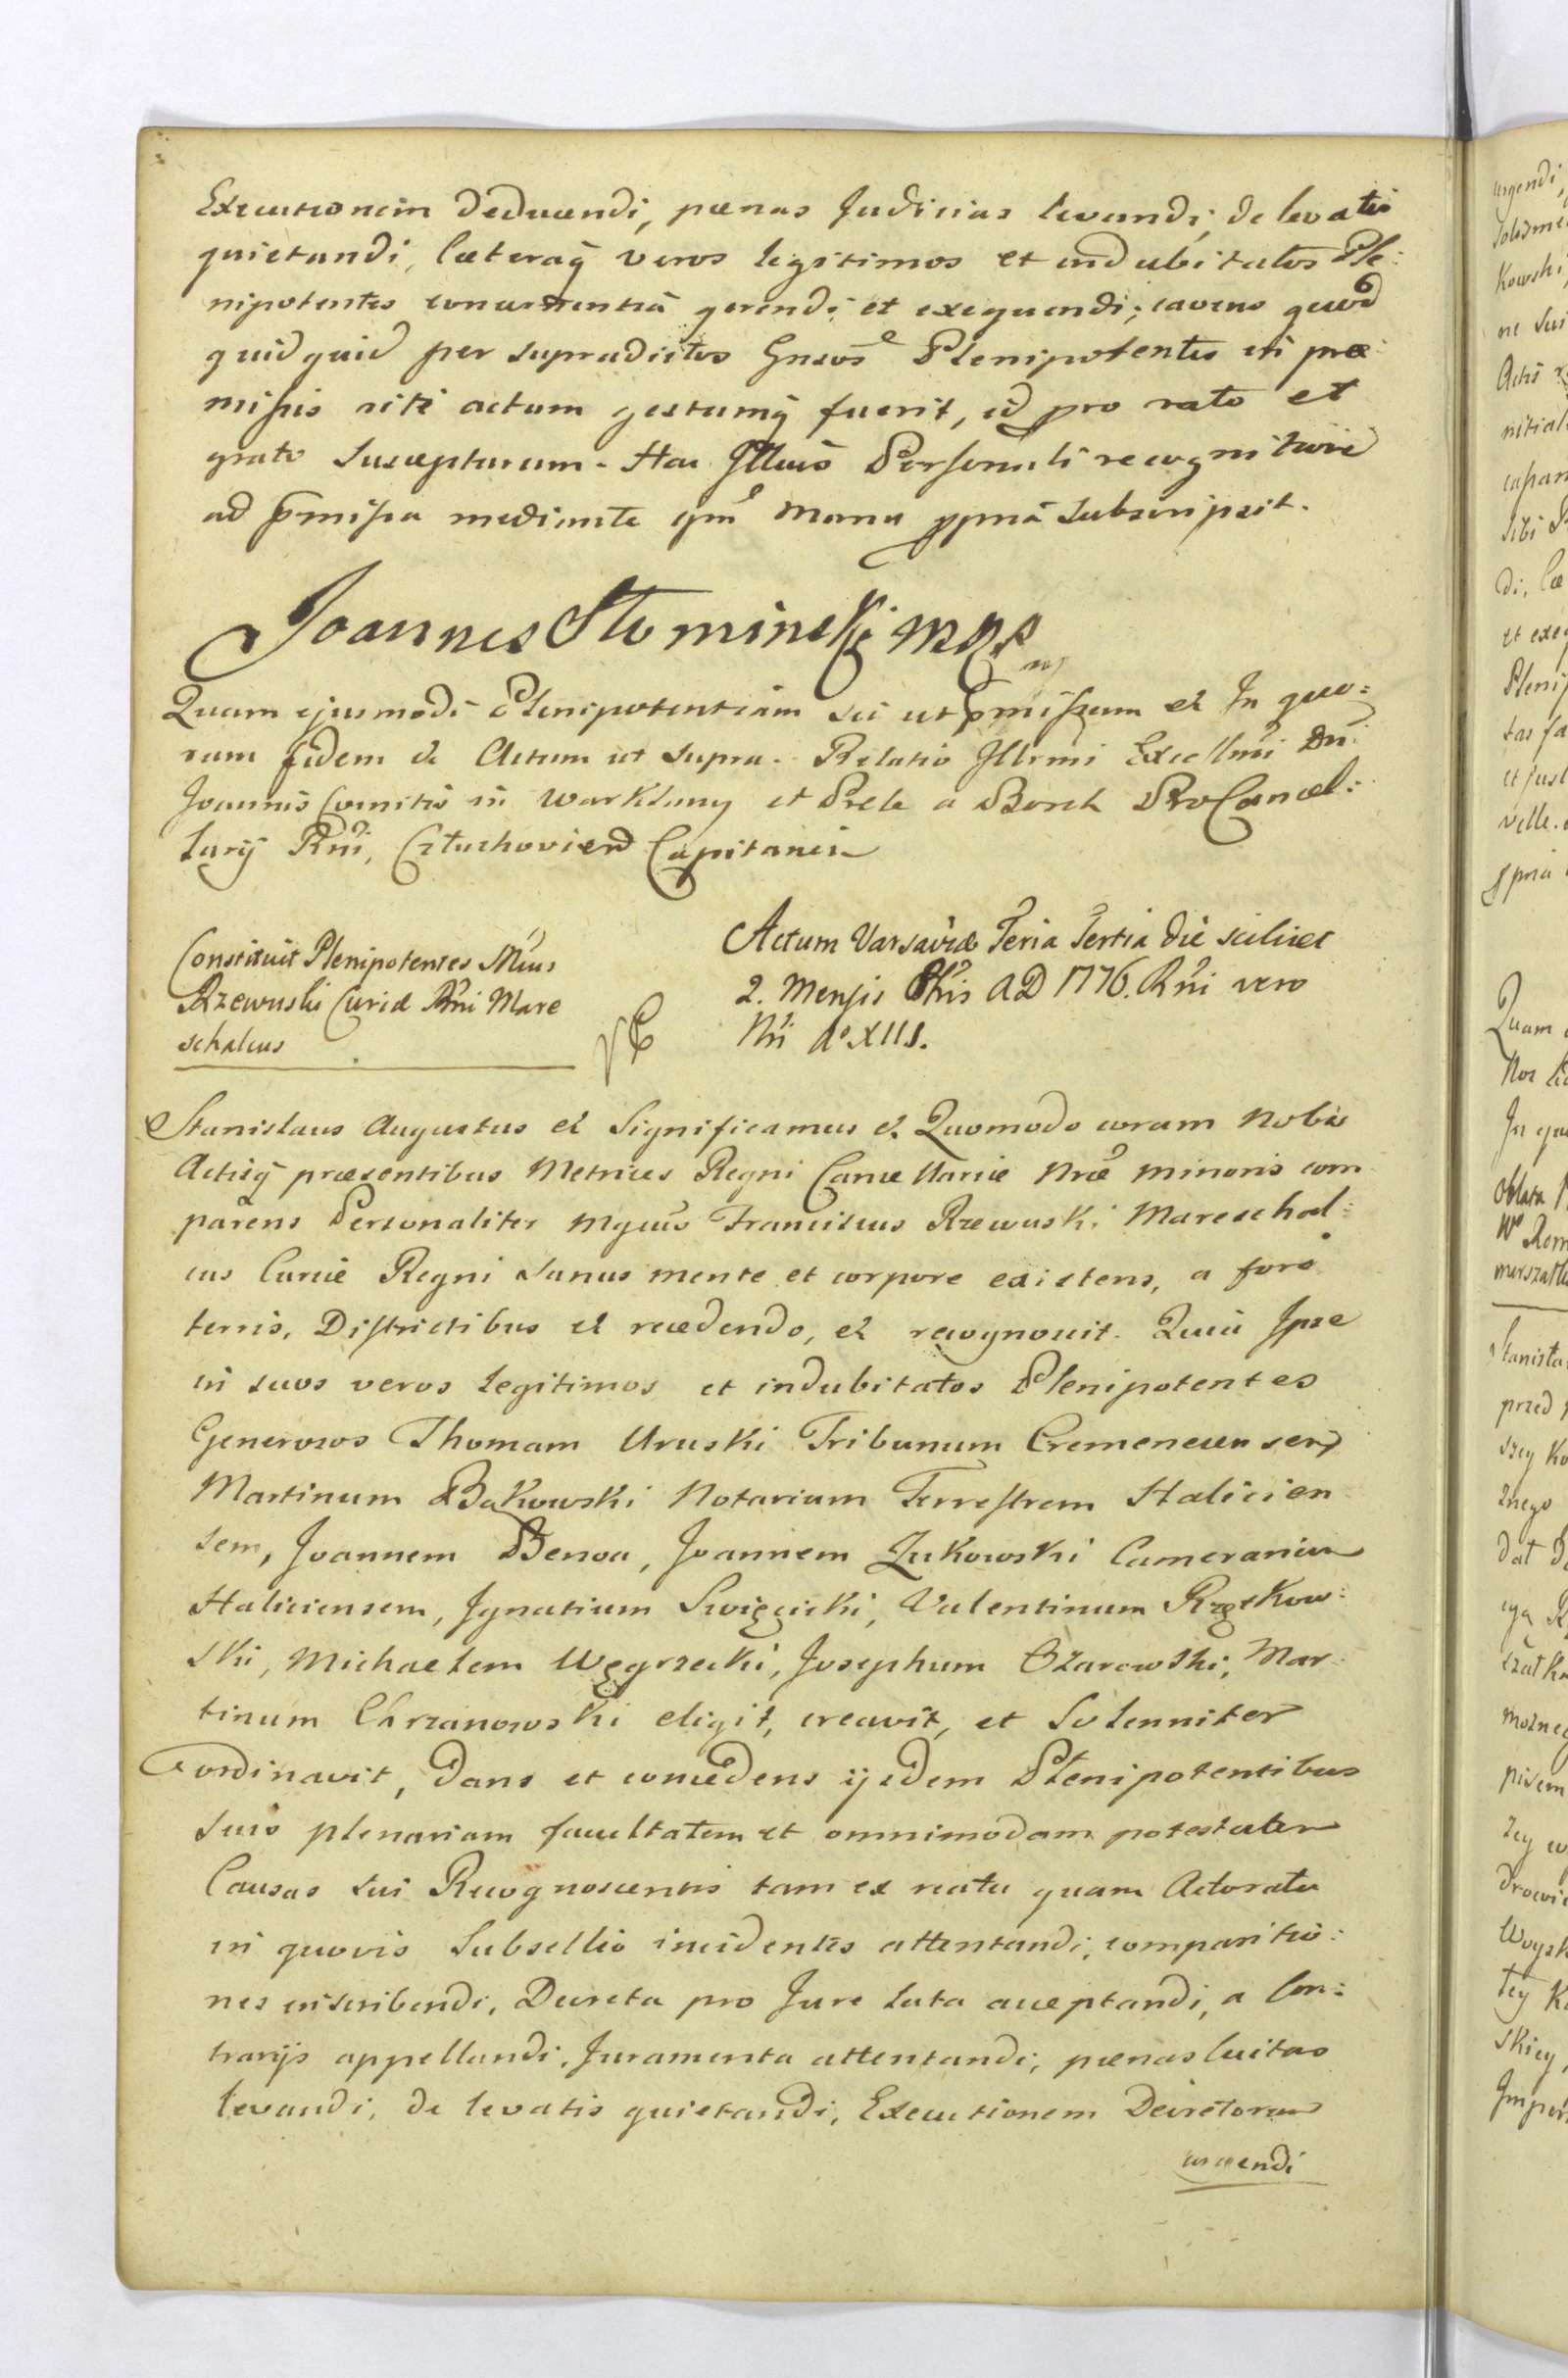 Executionem deducendi, pœnas Judicias levandi, de levatis
quietandi, Cæteraq̃ veros legitimos et indubitatos Ple:
nipotentes concernentia gerendi et exequendi; cavens quod
quidquid per supradictos Gnsos Plenipotentes in præ
missis rite actum gestumq̃ fuerit, id pro rato et
grato suscepturum. Hac Illius Personali recognitione
ad p̃missa mediante qm̃ manu ppriã subscripsit.
Joannes Słominski mpp
Quam ejusmodi Plenipotentiam sic ut p̃missum et In quo:
rum fidem et Actum ut supra. Relatio Illrmi Excellmi Dni
Joannis Comitis in Warklany et Prele a Borch ProCancel:
larij Rni, Człuchovien Capitanei
Constituit Plenipotentes Mcus
Rzewuski Curiæ Rni Mare
schalcus
Actum Varsaviæ Feria Tertia die scilicet
2. Mensis 8bris AD 1776. Rni vero
Nri Ao XIII.
Stanislaus Augustus et Significamus et Quomodo coram nobis
Actisq̃ præsentibus Metrices Regni Cancellariæ Nræ minoris com
parens Personaliter Mgcus Franciscus Rzewuski Mareschal:
cus Curiæ Regni sanus mente et corpore existens, a foro
terris, Districtibus et recedendo, et recognovit. Quia Ipse
in suos veros legitimos et indubitatos Plenipotentes
Generosos Thomam Uruski Tribunum Cremenecensem
Martinum Bąkowski Notarium Terrestrem Halicien
sem, Joannem Benoa, Joannem Zukowski Camerarium
Haliciensem, Ignatium Swięcicki, Valentinum Rzętkow:
ski, Michaelem Węgrzecki, Josephum Ożarowski, Mar
tinum Chrzanowski eligit, creavit, et Solenniter
ordinavit, Dans et concedens ijsdem Plenipotentibus
suis plenariam facultatem et omnimodam potestatem
Causas sui Recognoscentis tam ex reatu quam Actoratu
in quovis Subsellio incidentes attentandi, comparitio:
nes inscribendi, Decreta pro Jure lata acceptandi, a Con:
trarijs appellandi, Juramenta attentandi, pœnas luitas
levandi, de levatis quietandi, Executionem Decretorum
urgendi